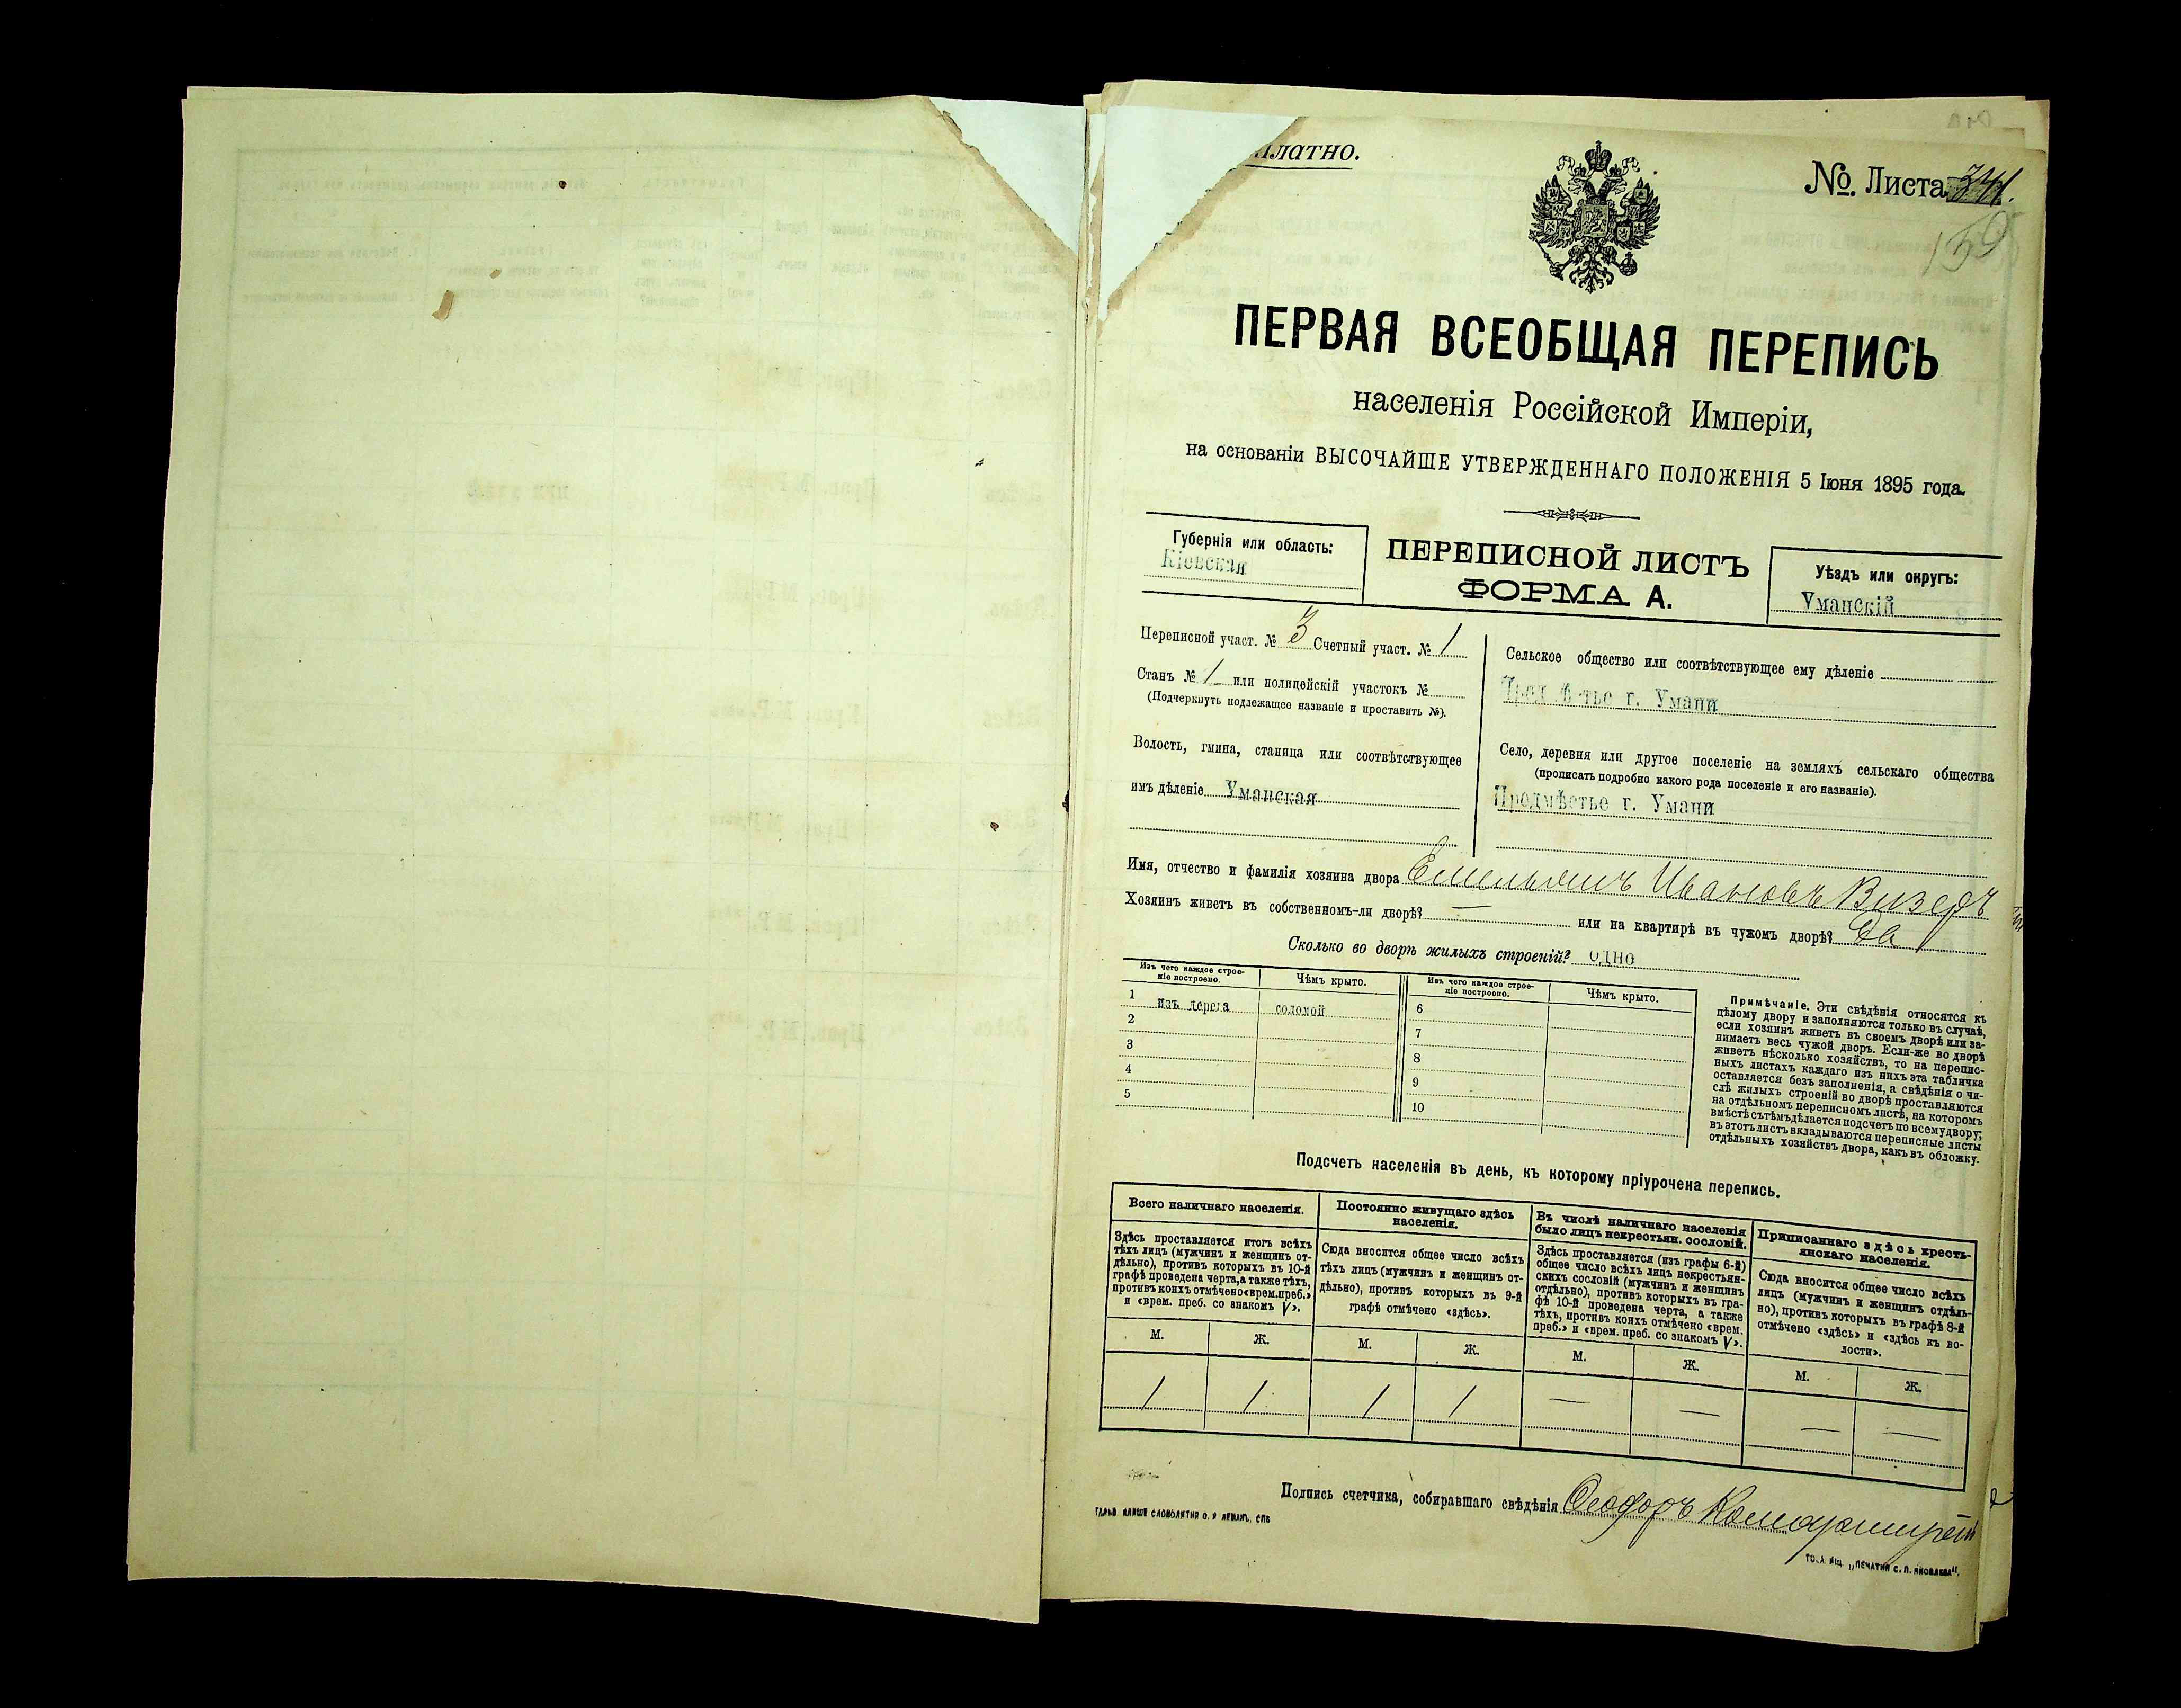 платно.
№. Листа 341.
159
ПЕРВАЯ ВСЕОБЩАЯ ПЕРЕПИСЬ
населенія Россійской Имперіи,
на основаніи ВЫСОЧАЙШЕ УТВЕРЖДЕННАГО ПОЛОЖЕНІЯ 5 Іюня 1895 года.
Губернія или область:
Кіевская
ПЕРЕПИСНОЙ ЛИСТЪ
ФОРМА А.
Уѣздъ или округъ:
Уманскій
Переписной участ. № 3 Счетный участ. № 1
Станъ № 1 или полицейскій участокъ №
(Подчеркнуть подлежащее названіе и проставить №).
Волость, гмина, станица или соотвѣтствующее
имъ дѣленіе Уманская
Сельское общество или соотвѣтствующее ему дѣленіе
г. Умани
Село, деревня или другое поселеніе на земляхъ сельскаго общества
(прописать подробно какого рода поселеніе и его названіе).
Предмѣстье г. Умани
Имя, отчество и фамилія хозяина двора Емельянъ Ивановъ Визеръ
Хозяинъ живетъ въ собственномъ-ли дворѣ? — или на квартирѣ въ чужомъ дворѣ? Да
Сколько во дворѣ жилыхъ строеній? одно
Изъ чего каждое строе-
ніе построено.
Чѣмъ крыто.
Изъ чего каждое строе-
ніе построено.
Чѣмъ крыто.
1 изъ дерева соломой
2
3
4
5
6
7
8
9
10
Примѣчаніе. Эти свѣдѣнія относятся къ
цѣлому двору и заполняются только въ случаѣ,
если хозяинъ живетъ въ своемъ дворѣ или за-
нимаетъ весь чужой дворъ. Если-же во дворѣ
живетъ нѣсколько хозяйствъ, то на перепис-
ныхъ листахъ каждаго изъ нихъ эта табличка
оставляется безъ заполненія, а свѣдѣнія о чи-
слѣ жилыхъ строеній во дворѣ проставляются
на отдѣльномъ переписномъ листѣ, на которомъ
вмѣстѣ съ тѣмъ дѣлается подсчетъ по всему двору;
въ этотъ листъ вкладываются переписные листы
отдѣльныхъ хозяйствъ двора, какъ въ обложку.
Подсчетъ населенія въ день, къ которому пріурочена перепись.
Всего наличнаго населенія.
Здѣсь проставляется итогъ всѣхъ
тѣхъ лицъ (мужчинъ и женщинъ от-
дѣльно), противъ которыхъ въ 10-й
графѣ проведена черта, а также тѣхъ,
противъ коихъ отмѣчено «врем. преб.»
и «врем. преб. со знакомъ V».
М. Ж.
1 1
Постоянно живущаго здѣсь
населенія.
Сюда вносится общее число всѣхъ
тѣхъ лицъ (мужчинъ и женщинъ от-
дѣльно), противъ которыхъ въ 9-й
графѣ отмѣчено «здѣсь».
М. Ж.
1 1
Въ числѣ наличнаго населенія
было лицъ некрестьян. сословій.
Здѣсь проставляется (изъ графы 6-й)
общее число всѣхъ лицъ некрестьян-
скихъ сословій (мужчинъ и женщинъ
отдѣльно), противъ которыхъ въ гра-
фѣ 10-й проведена черта, а также
тѣхъ, противъ коихъ отмѣчено «врем.
преб.» и «врем. преб. со знакомъ V».
М. Ж.
— —
Приписаннаго здѣсь кресть-
янскаго населенія.
Сюда вносится общее число всѣхъ
лицъ (мужчинъ и женщинъ отдѣль-
но), противъ которыхъ въ графѣ 8-й
отмѣчено «здѣсь» и «здѣсь къ во-
лости».
М. Ж.
— —
Подпись счетчика, собиравшаго свѣдѣнія Ѳеодоръ
КЛИШЕ СЛОВОЛИТНИ О. И ЛЕМАНЪ, СПБ
„ПЕЧАТНИ С. П. ЯКОВЛЕВА“.